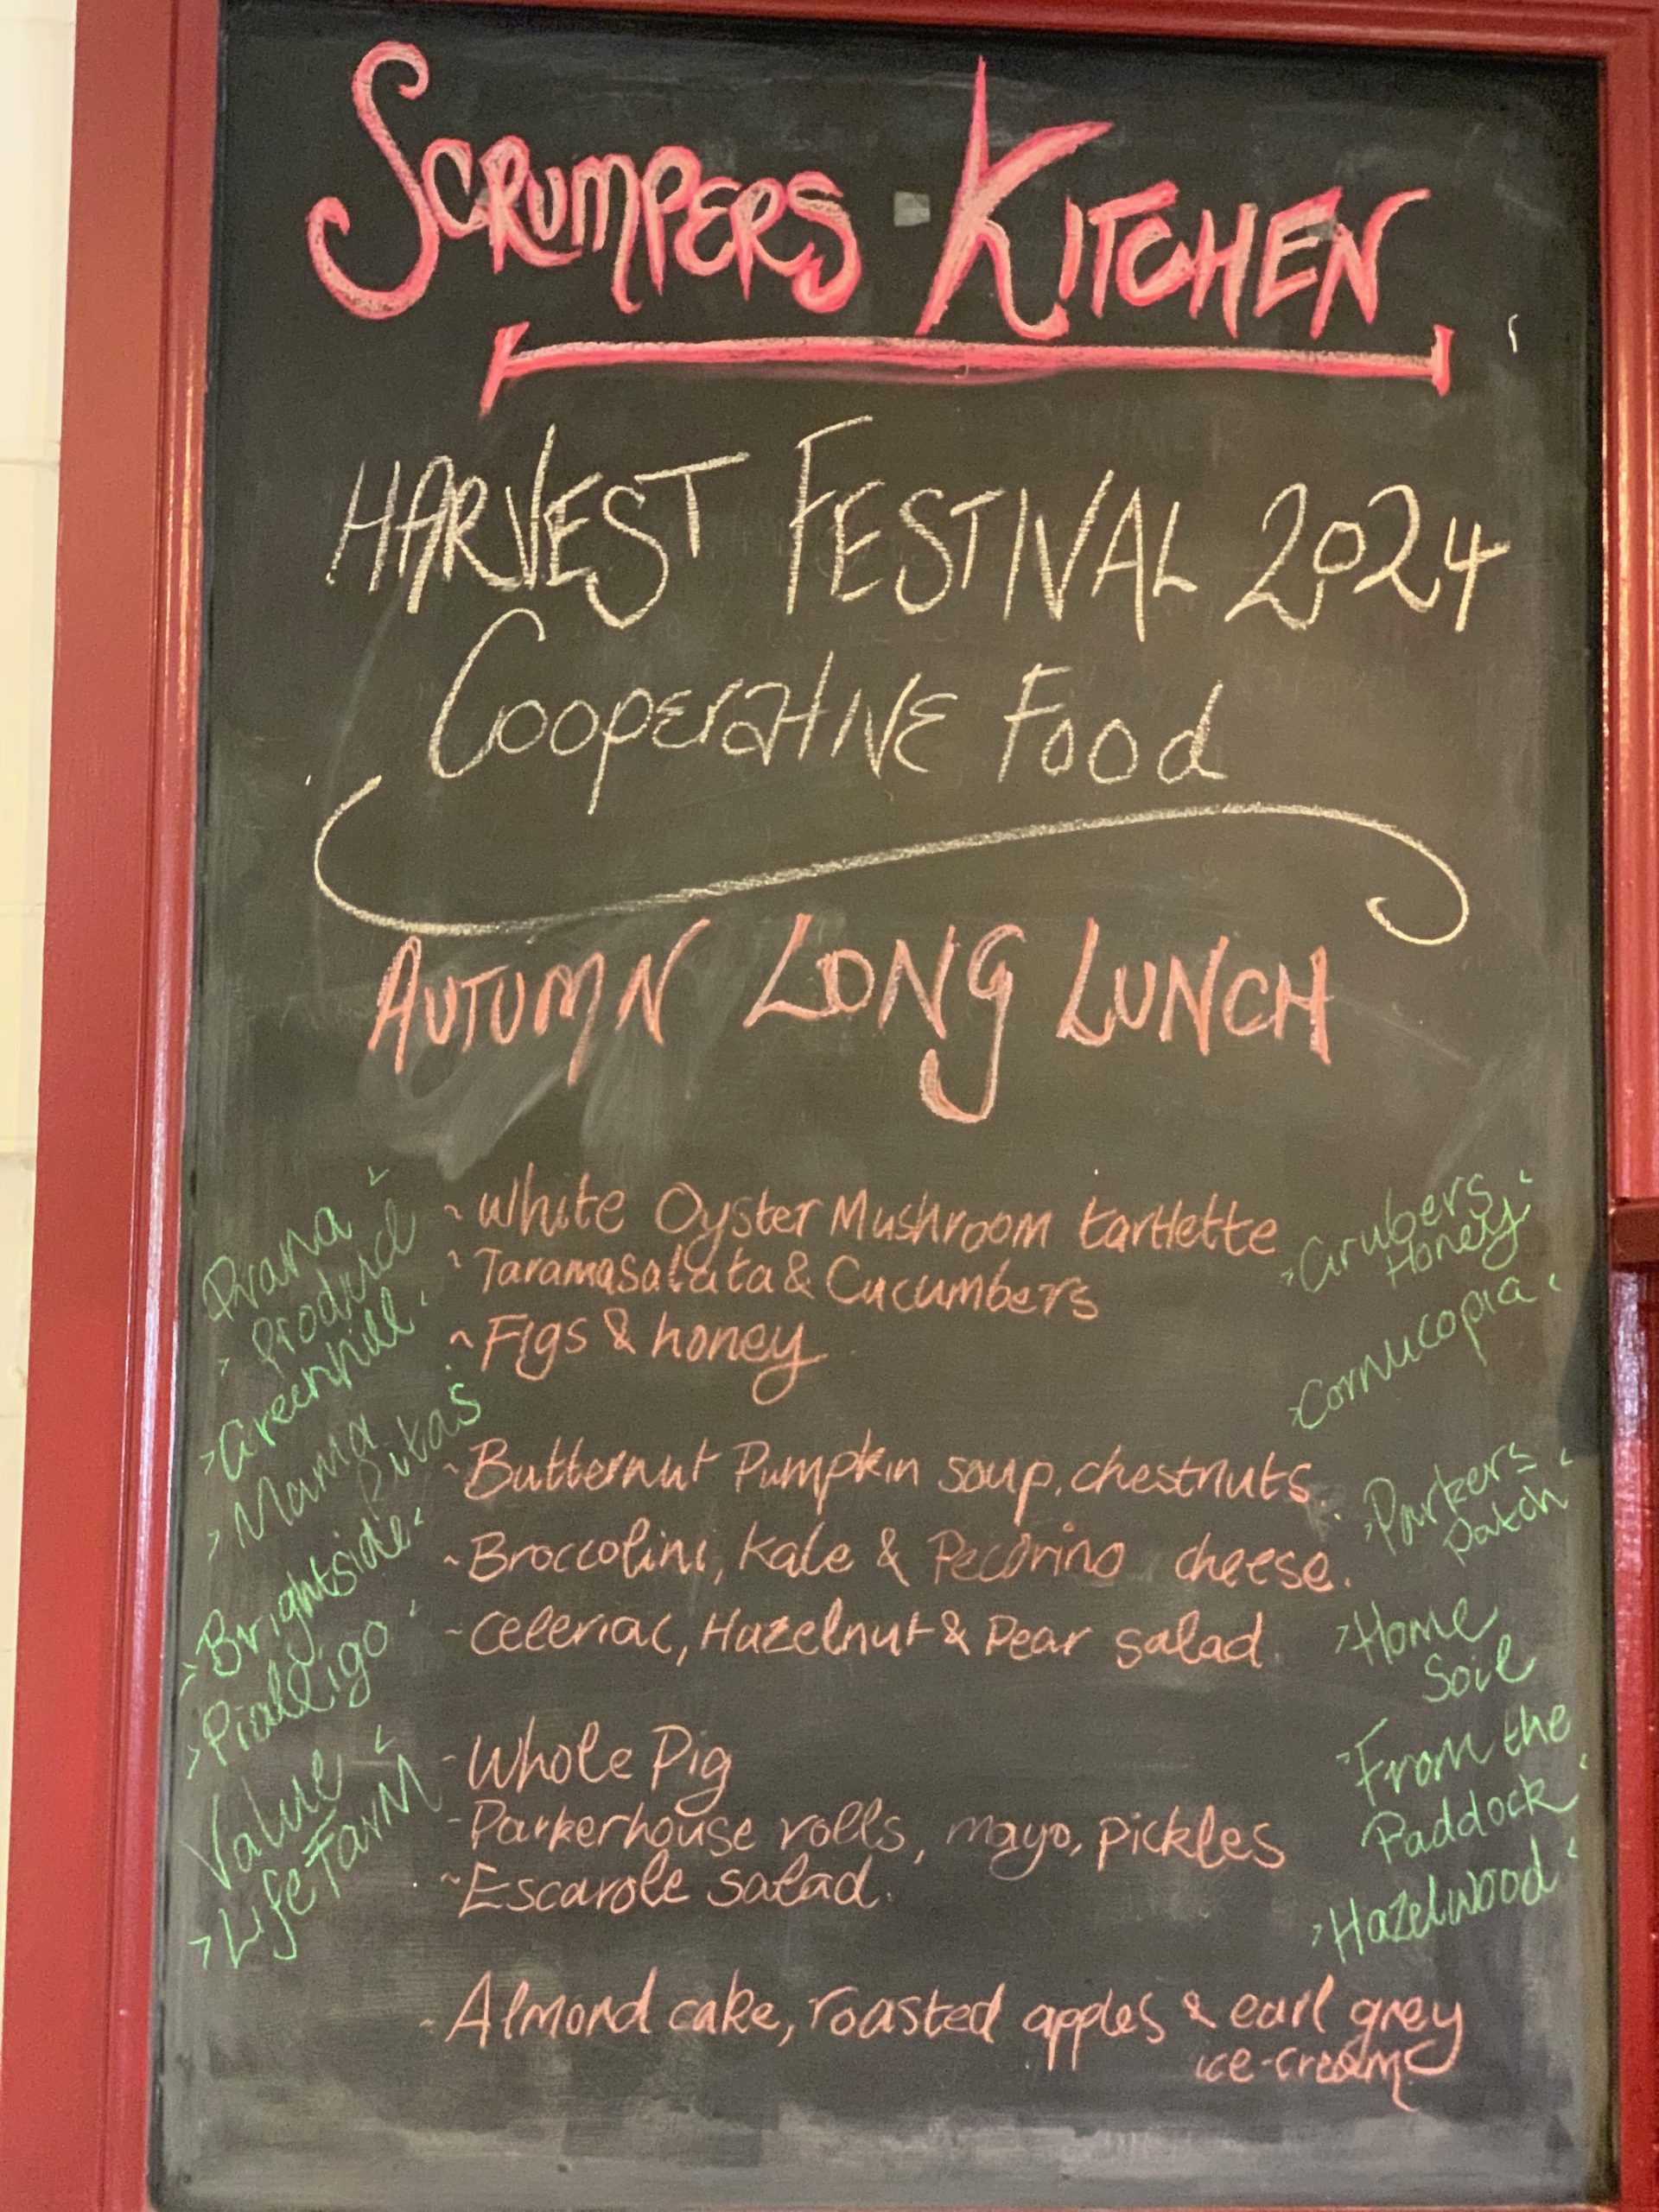 SCRUMPERS KITCHEN
HARVEST FESTIVAL 2024
COOPERATIVE FOOD
AUTUMN LONG LUNCH
~ White Oyster Mushroom tartlette
~ Taramasalata & Cucumbers
~ Figs & honey
~ Butternut Pumpkin soup, chestnuts.
~ Broccolini, Kale & Pecorino cheese.
~ Celeriac, Hazelnut & Pear salad.
- Whole Pig
- Parkerhouse rolls, mayo, pickles
~ Escarole salad.
- Almond cake, roasted apples & earl grey
ice-cream
Prana
Produce
Greenhill
Mama
Ritas
Brightside
Pialligo
Value
Life Farm
Grubers
Honey
Cornucopia
Parkers
Patch
Home
Soil
From the
Paddock
Hazelwood